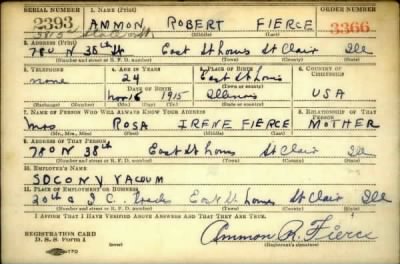 SERIAL NUMBER 1. NAME (Print) ORDER NUMBER
2393 AMMON ROBERT FIERCE 3366
(First) (Middle) (Last)
2. ADDRESS (Print)
780 N 38th St East St Louis St Clair Ill
(Number and street or R. F. D. number) (Town) (County) (State)
3. TELEPHONE 4. AGE IN YEARS 5. PLACE OF BIRTH 6. COUNTRY OF CITIZENSHIP
none 24 East St Louis
DATE OF BIRTH (Town or county)
Nov 16 1915 Illinois USA
(Exchange) (Number) (Mo.) (Day) (Yr.) (State or country)
7. NAME OF PERSON WHO WILL ALWAYS KNOW YOUR ADDRESS 8. RELATIONSHIP OF THAT PERSON
Mrs ROSA IRENE FIERCE MOTHER
(Mr., Mrs., Miss) (First) (Middle) (Last)
9. ADDRESS OF THAT PERSON
780 N 38th East St Louis St Clair Ill
(Number and street or R. F. D. number) (Town) (County) (State)
10. EMPLOYER'S NAME
SOCONY VACUUM
11. PLACE OF EMPLOYMENT OR BUSINESS
20th & I C. Tracks East St Louis St Clair Ill
(Number and street or R. F. D. number) (Town) (County) (State)
I AFFIRM THAT I HAVE VERIFIED ABOVE ANSWERS AND THAT THEY ARE TRUE.
REGISTRATION CARD
D. S. S. Form 1 Ammon R. Fierce
(Registrant's signature)